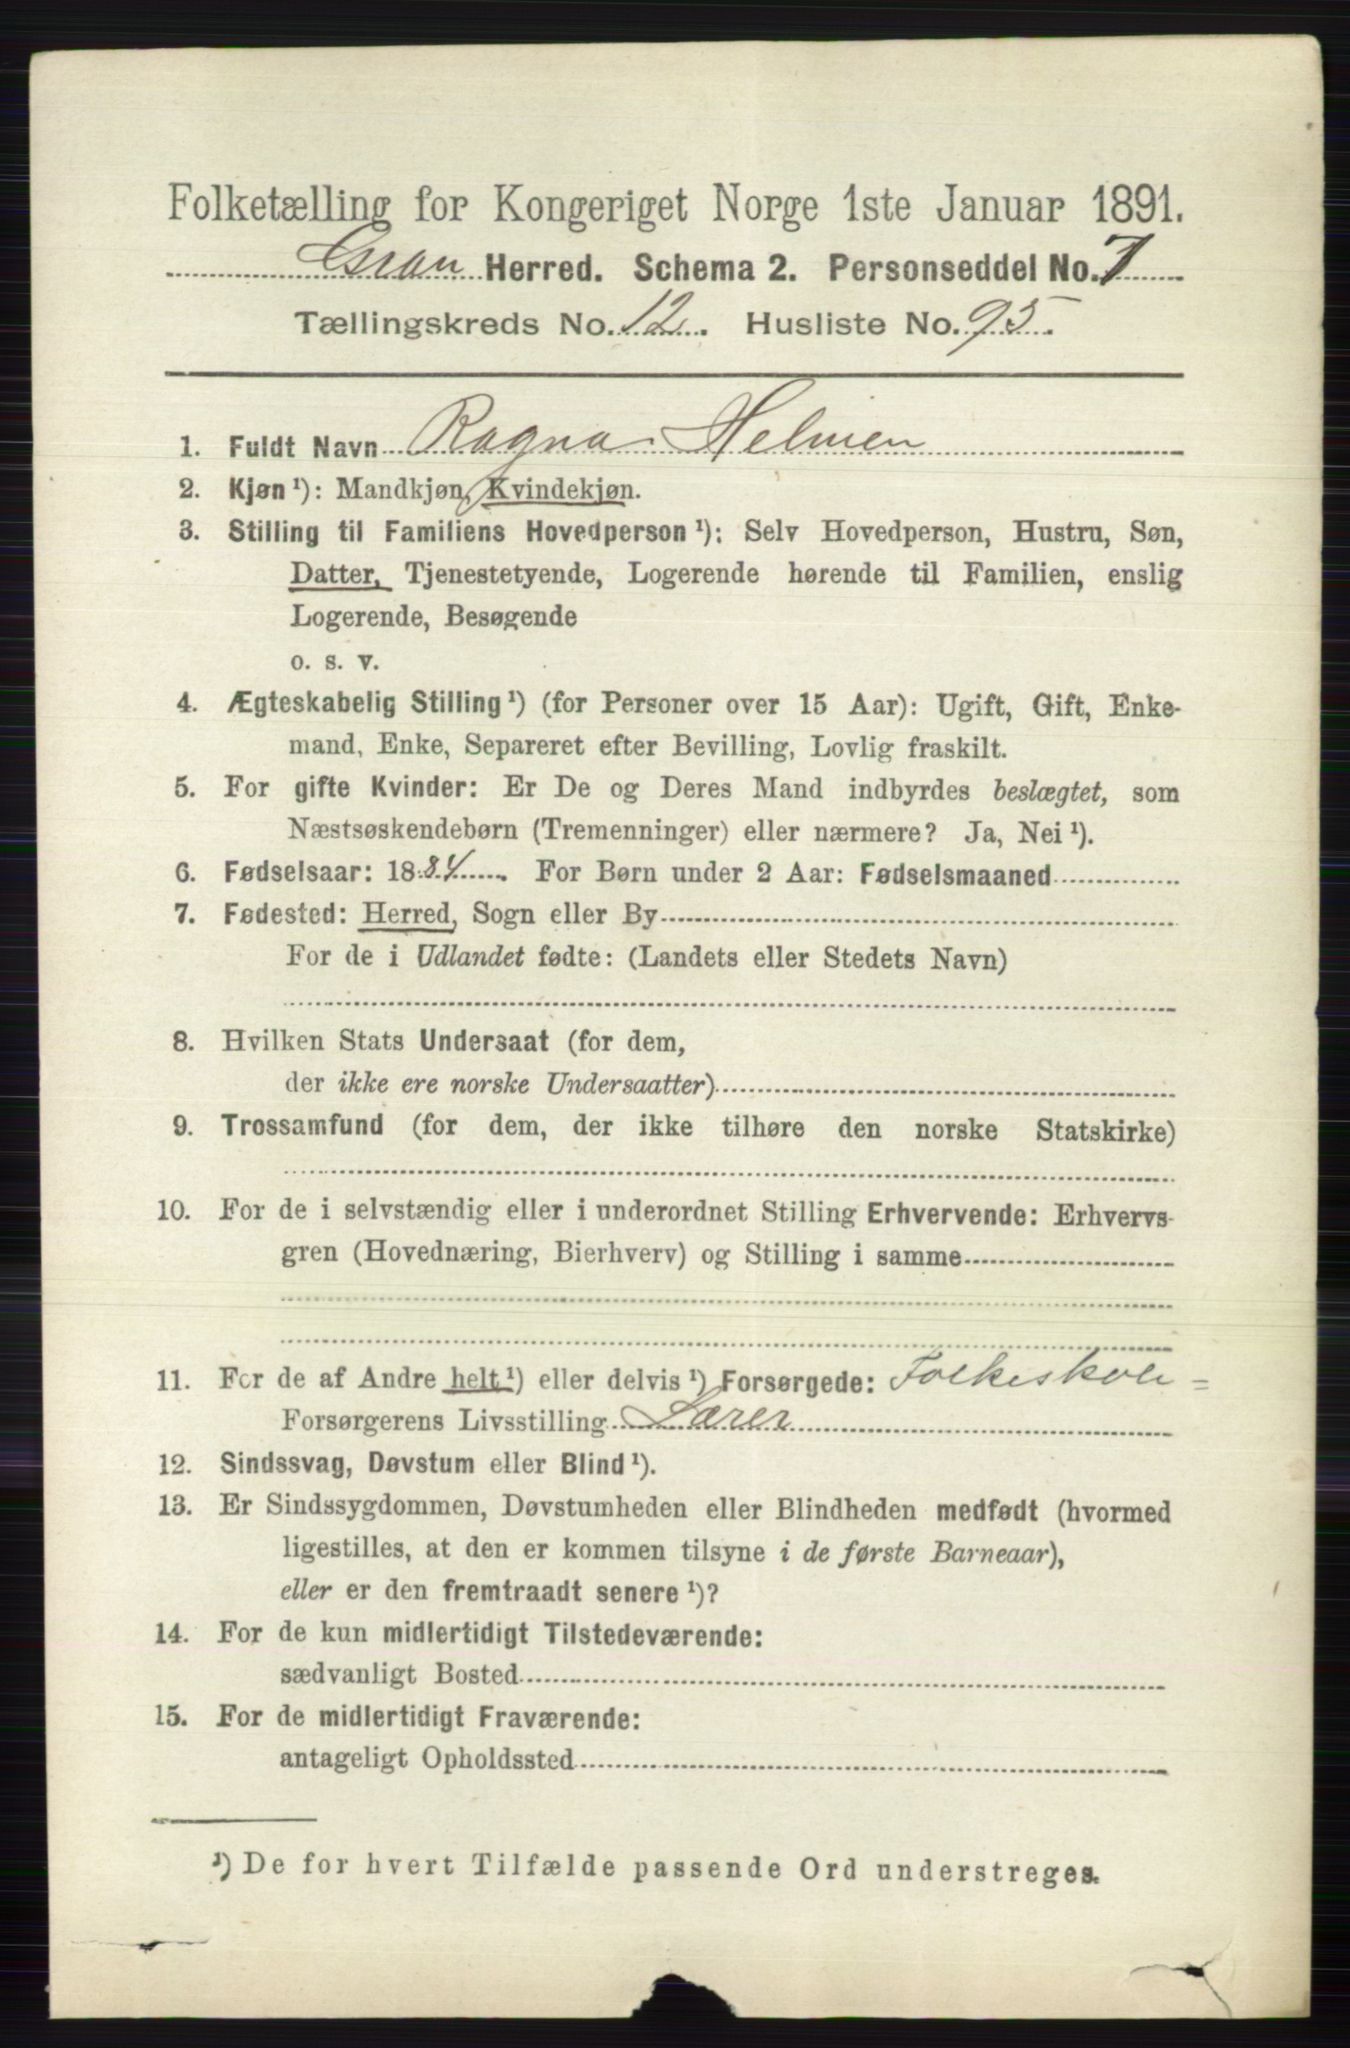 Folketælling for Kongeriget Norge 1ste Januar 1891.
Gran Herred. Schema 2. Personseddel No. 7
Tællingskreds No. 12. Husliste No. 95.
1. Fuldt Navn Ragna Helmen
2. Kjøn ¹): Mandkjøn, Kvindekjøn.
3. Stilling til Familiens Hovedperson ¹): Selv Hovedperson, Hustru, Søn,
Datter, Tjenestetyende, Logerende hørende til Familien, enslig
Logerende, Besøgende
o. s. v.
4. Ægteskabelig Stilling ¹) (for Personer over 15 Aar): Ugift, Gift, Enke-
mand, Enke, Separeret efter Bevilling, Lovlig fraskilt.
5. For gifte Kvinder: Er De og Deres Mand indbyrdes beslægtet, som
Næstsøskendebørn (Tremenninger) eller nærmere? Ja, Nei ¹).
6. Fødselsaar: 1884. For Børn under 2 Aar: Fødselsmaaned
7. Fødested: Herred, Sogn eller By
For de i Udlandet fødte: (Landets eller Stedets Navn)
8. Hvilken Stats Undersaat (for dem,
der ikke ere norske Undersaatter)
9. Trossamfund (for dem, der ikke tilhøre den norske Statskirke)
10. For de i selvstændig eller i underordnet Stilling Erhvervende: Erhvervs-
gren (Hovednæring, Bierhverv) og Stilling i samme
11. For de af Andre helt ¹) eller delvis ¹) Forsørgede: Folkeskole=
Forsørgerens Livsstilling Lærer
12. Sindssvag, Døvstum eller Blind ¹).
13. Er Sindssygdommen, Døvstumheden eller Blindheden medfødt (hvormed
ligestilles, at den er kommen tilsyne i de første Barneaar),
eller er den fremtraadt senere ¹)?
14. For de kun midlertidigt Tilstedeværende:
sædvanligt Bosted
15. For de midlertidigt Fraværende:
antageligt Opholdssted
¹) De for hvert Tilfælde passende Ord understreges.